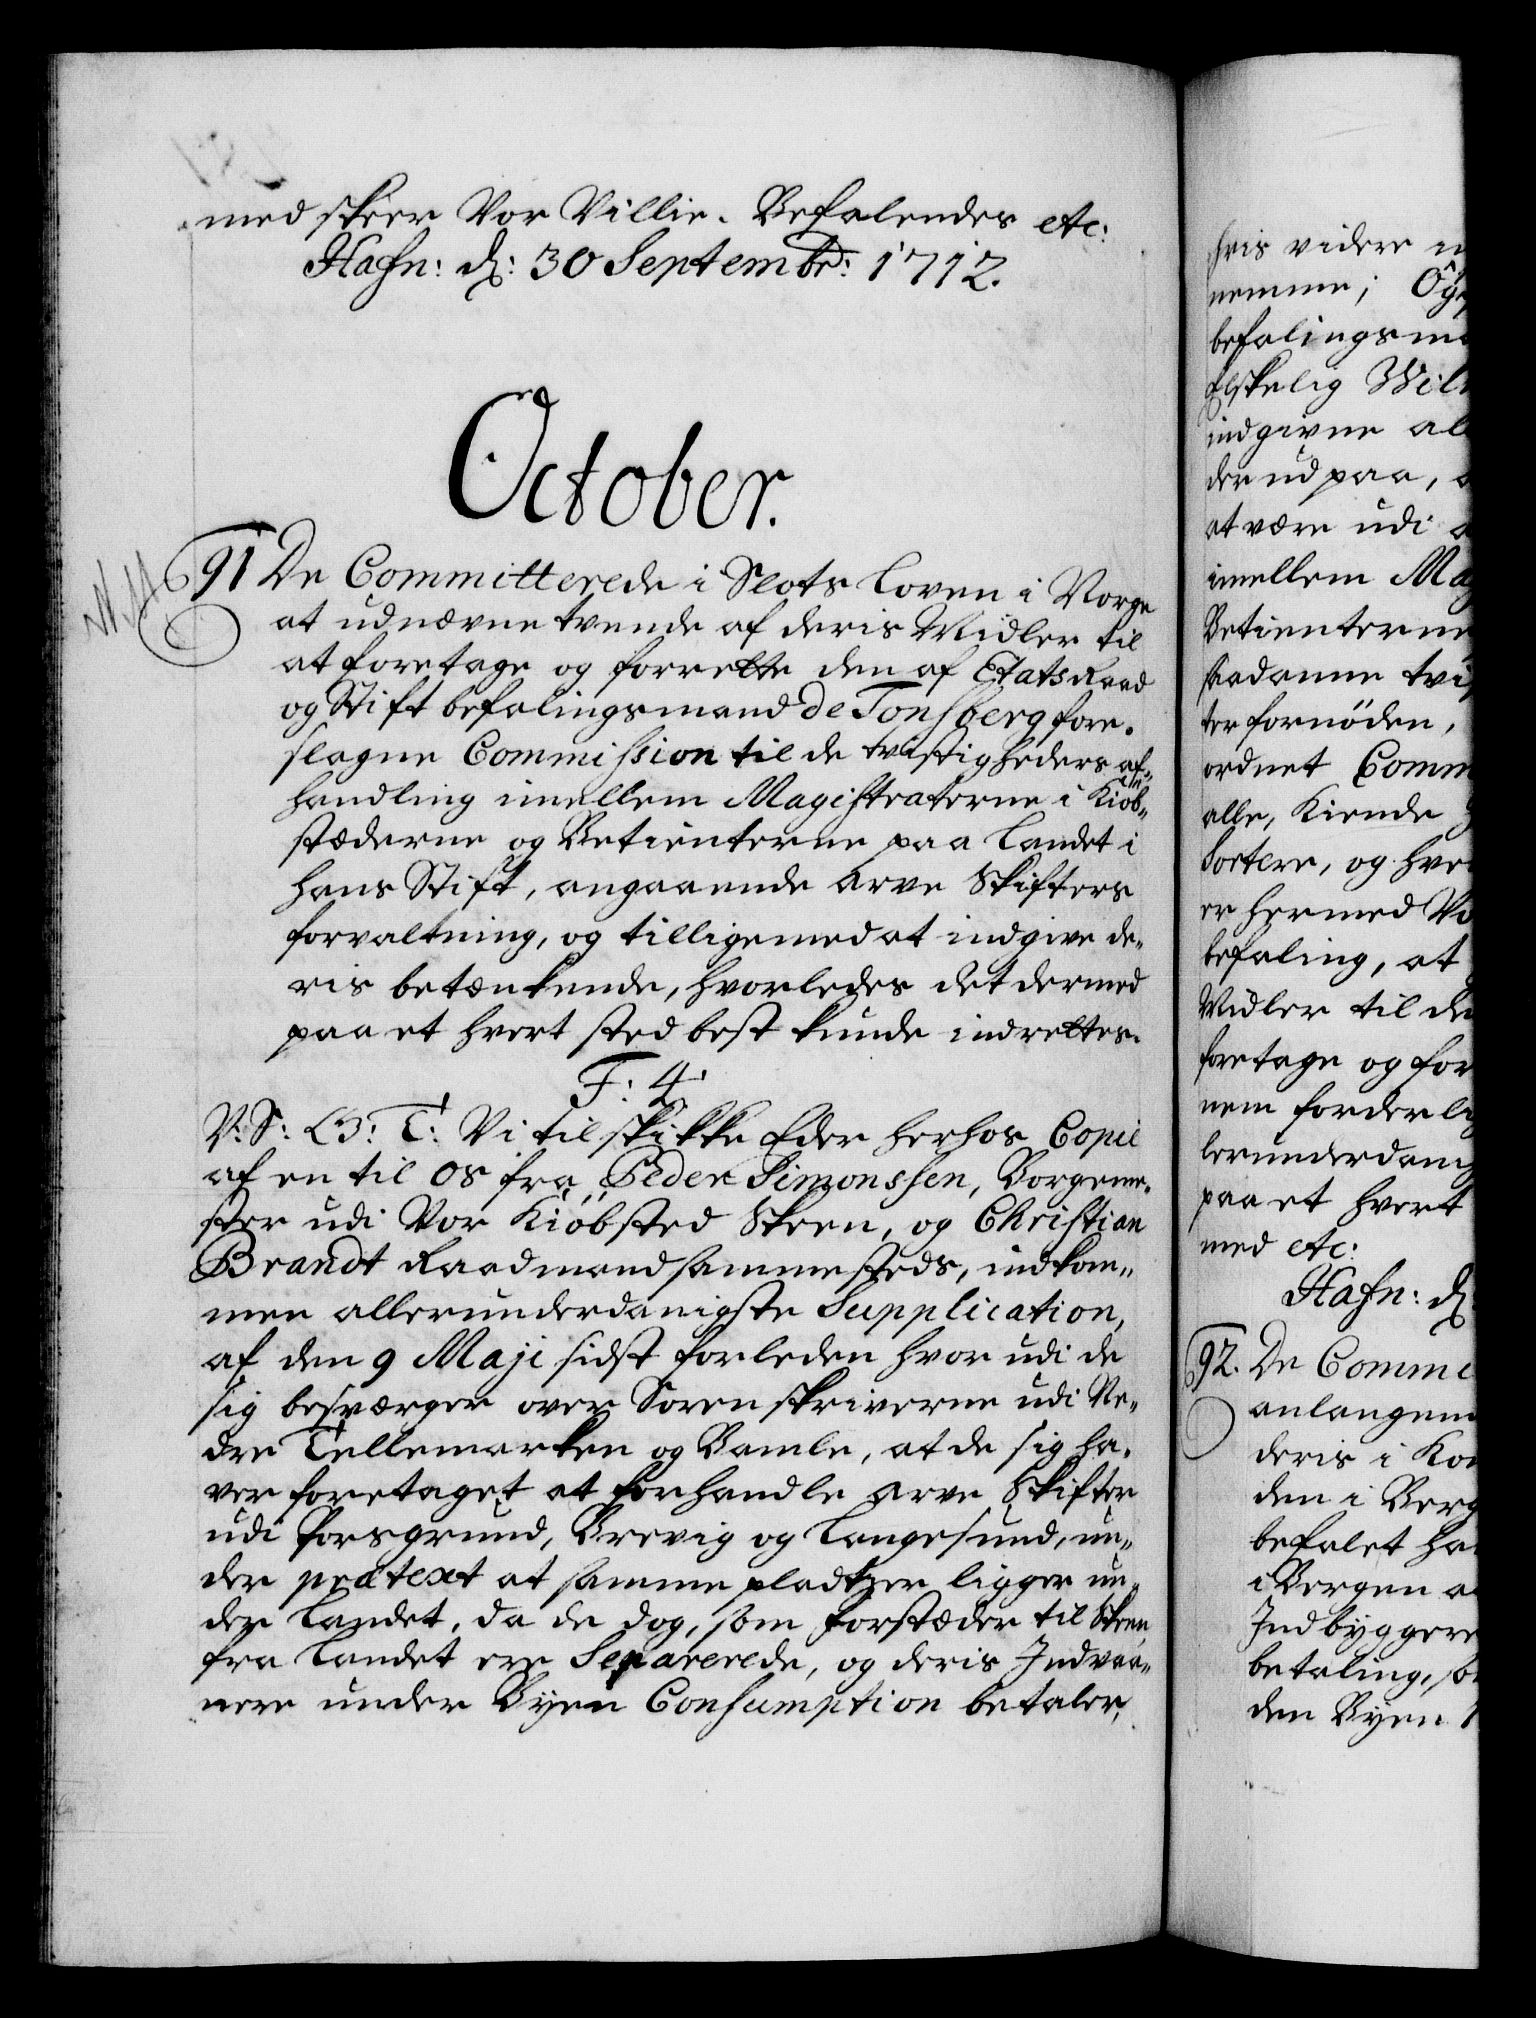 med skeer Vor Villie. Befalendes etc:
Hafn: d: 30 Septembr: 1712.
October.
91 De Committerede i Slots Loven i Norge
at udnævne tvende af deris Midler til
at foretage og forrette den af Etats Raad
og Stift befalingsmand de Tonsberg fore-
slagne Commission til de tvistigheders af-
handling imellem Magistraterne i Kiöb-
stæderne og Betienterne paa Landet i
hans Stift, angaaende Arve Skifters
forvaltning, og tilligemed at indgive de-
ris betænkende, hvorledes det dermed
paa et hvert sted best kunde indrettes.
F: 4.
V: S: G: T: Vi tilskikke Eder herhos Copie
af en til os fra Peder Simonssen, Borgeme-
ster udi Vor Kiöbsted Skeen, og Christian
Brandt Raadmand sammesteds, indkom-
men allerunderdanigste Supplication,
af den 9 Maji sidst forleden hvor udi de
sig besværger over Sorenskriverne udi Ne-
dre Tellemarken og Bamle, at de sig ha-
ver foretaget at forhandle Arve Skifter
udi Porsgrund, Brevig og Langesund, un-
der prætext at samme pladtzer ligger un-
der Landet, da de dog, som forstæder til Skeen
fra Landet ere Separerede, og deris Indvaa-
nere under Byen Consumption betaler,
hvis videre
nemme;
befalingsm
Elskelig Wil
indgivne al
der ud paa,
at være udi
imellem Mag
Betienterne
saadanne tvi
ter fornöden,
ordnet Comm
alle, Kiende
Sortere, og hve
er hermed Vo
befaling, at
Midler til de
foretage og for
nem forderlig
lerunderdanig
paa et hvert
med etc:
Hafn: d:
92. De Commi
anlangen
deris i Ko
den i Berg
befalet ha
i Bergen a
Indbyggere
betaling, so
den Byen